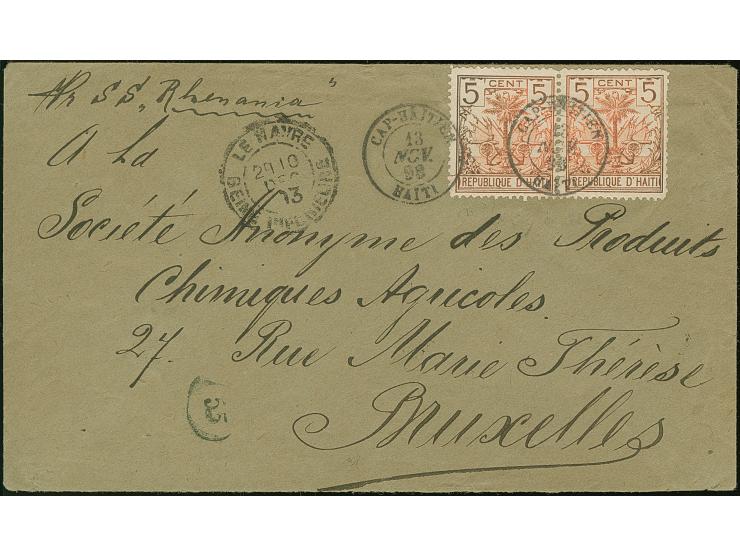 Pr S.S. „Rhenania"
A La
Société Anonyme des Produits
Chimiques Agricoles.
27. Rue Marie Thérèse
Bruxelles
LE HAVRE
DEC
CAP-HAITIEN
13
NOV.
HAITI
5 CENT 5
REPUBLIQUE D'HAITI
5 CENT 5
REPUBLIQUE D'HAITI
CAP-HAITIEN